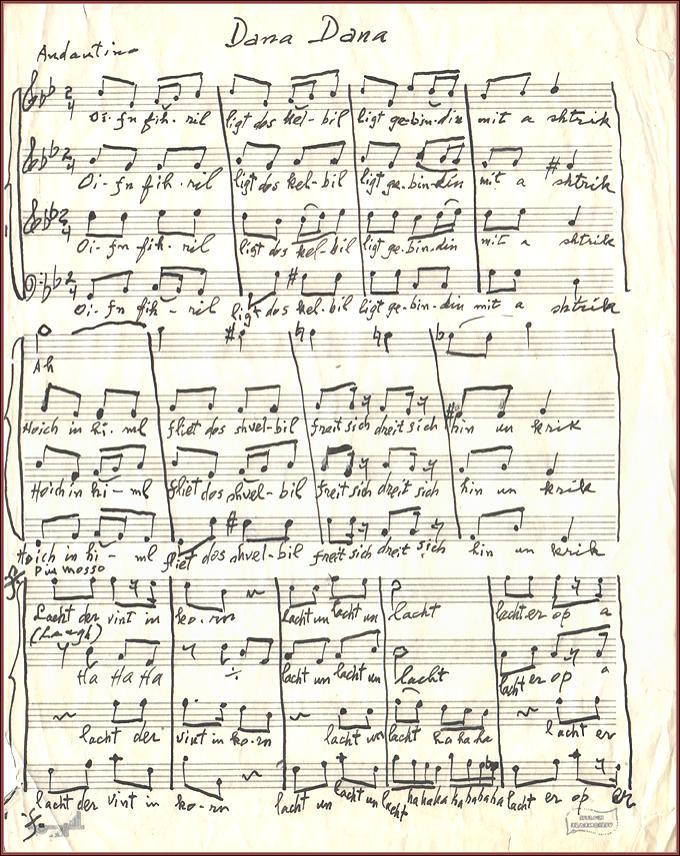 Dana Dana
Andantino
Oi-fn fih-ril ligt dos kel-bil ligt ge-bin-din mit a shtrik
Oi-fn fih-ril ligt dos kel-bil ligt ge-bin-din mit a shtrik
Oi-fn fih-ril ligt dos kel-bil ligt ge-bin-din mit a shtrik
Oi-fn fih-ril ligt dos kel-bil ligt ge-bin-din mit a shtrik
Ah
Hoich in hi-ml fliet dos shvel-bil freit sich dreit sich hin un krik
Hoich in hi-ml fliet dos shvel-bil freit sich dreit sich hin un krik
Hoich in hi-ml fliet dos shvel-bil freit sich dreit sich hin un krik
Piu mosso
Lacht der vint in ko-rn Lacht un lacht un lacht lacht er op a
(Laugh)
Ha Ha Ha lacht un lacht un lacht lacht er op a
lacht der vint in ko-rn lacht un lacht ha ha ha lacht er
lacht der vint in ko-rn lacht un lacht un lacht ha ha ha ha ha ha ha lacht er op